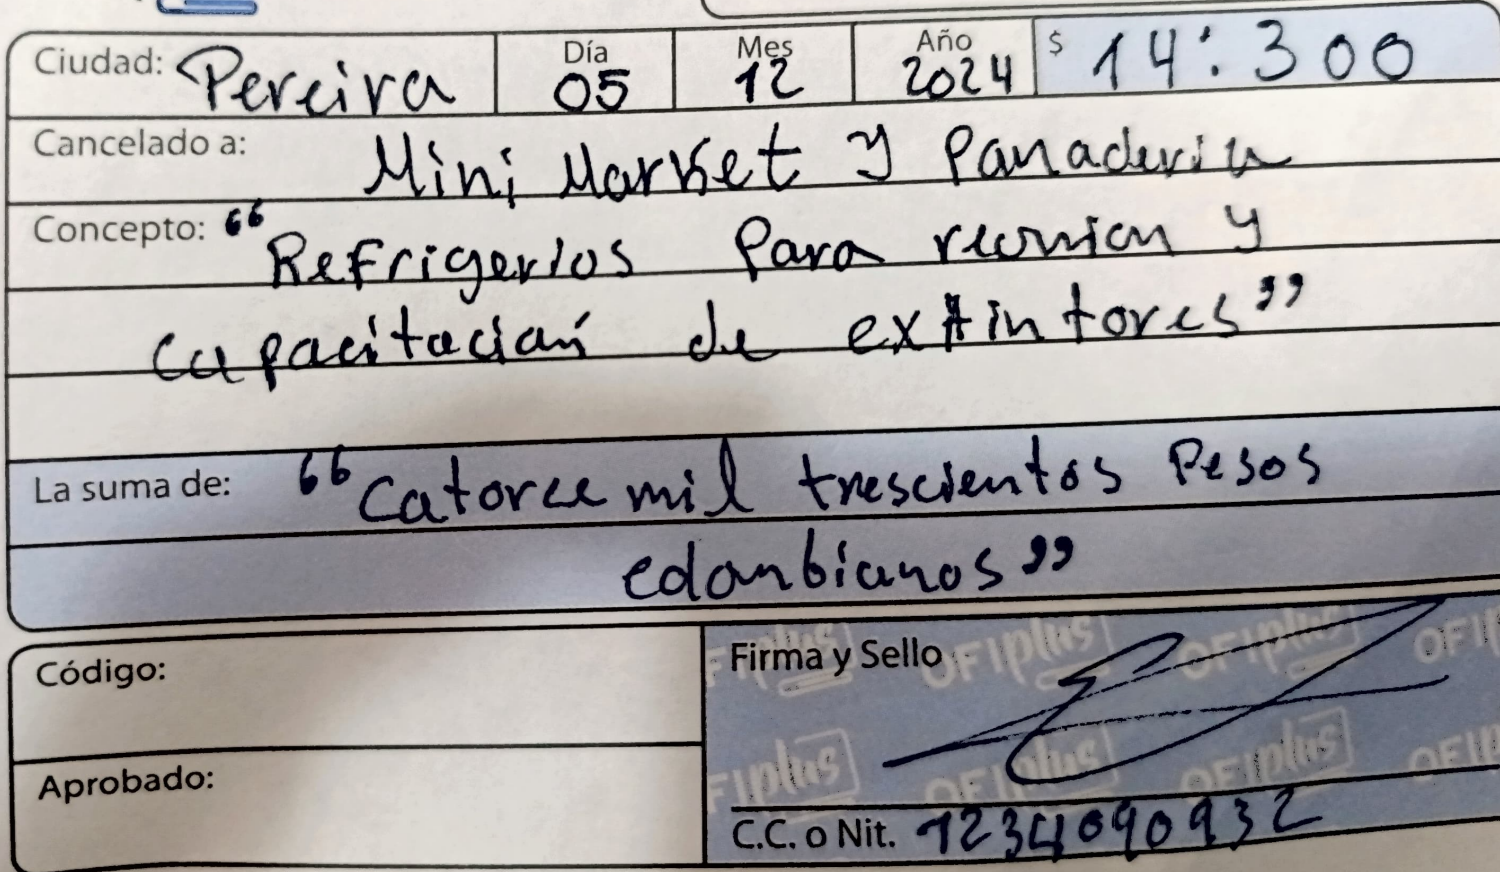 Ciudad: Pereira Día 05 Mes 12 Año 2024 $ 14:300
Cancelado a: Mini Market y Panaderia
Concepto: "Refrigerios para reunion y
capacitación de extintores"
La suma de: "Catorce mil trescientos Pesos
colombianos"
Código:
Firma y Sello
Aprobado:
C.C. o Nit. 1234090932
OFIplus